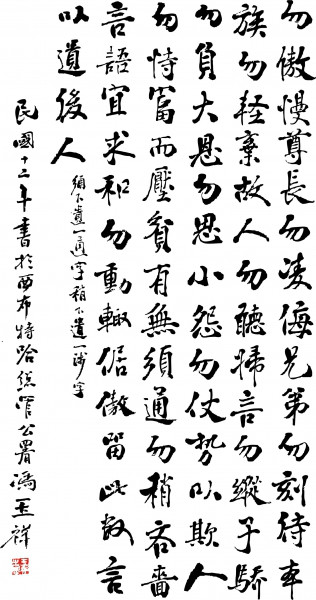 勿傲慢尊長勿凌侮兄弟勿刻待本
族勿輕棄故人勿聽婦言勿縱子驕
勿負大恩勿思小怨勿仗勢以欺人
勿恃富而壓貧有無須通勿稍吝嗇
言語宜求和勿動輒倨傲留此數言
以遺後人
須下遺一通字稍下遺一涉字
民國十二年書於西布特哈總管公署馮玉祥